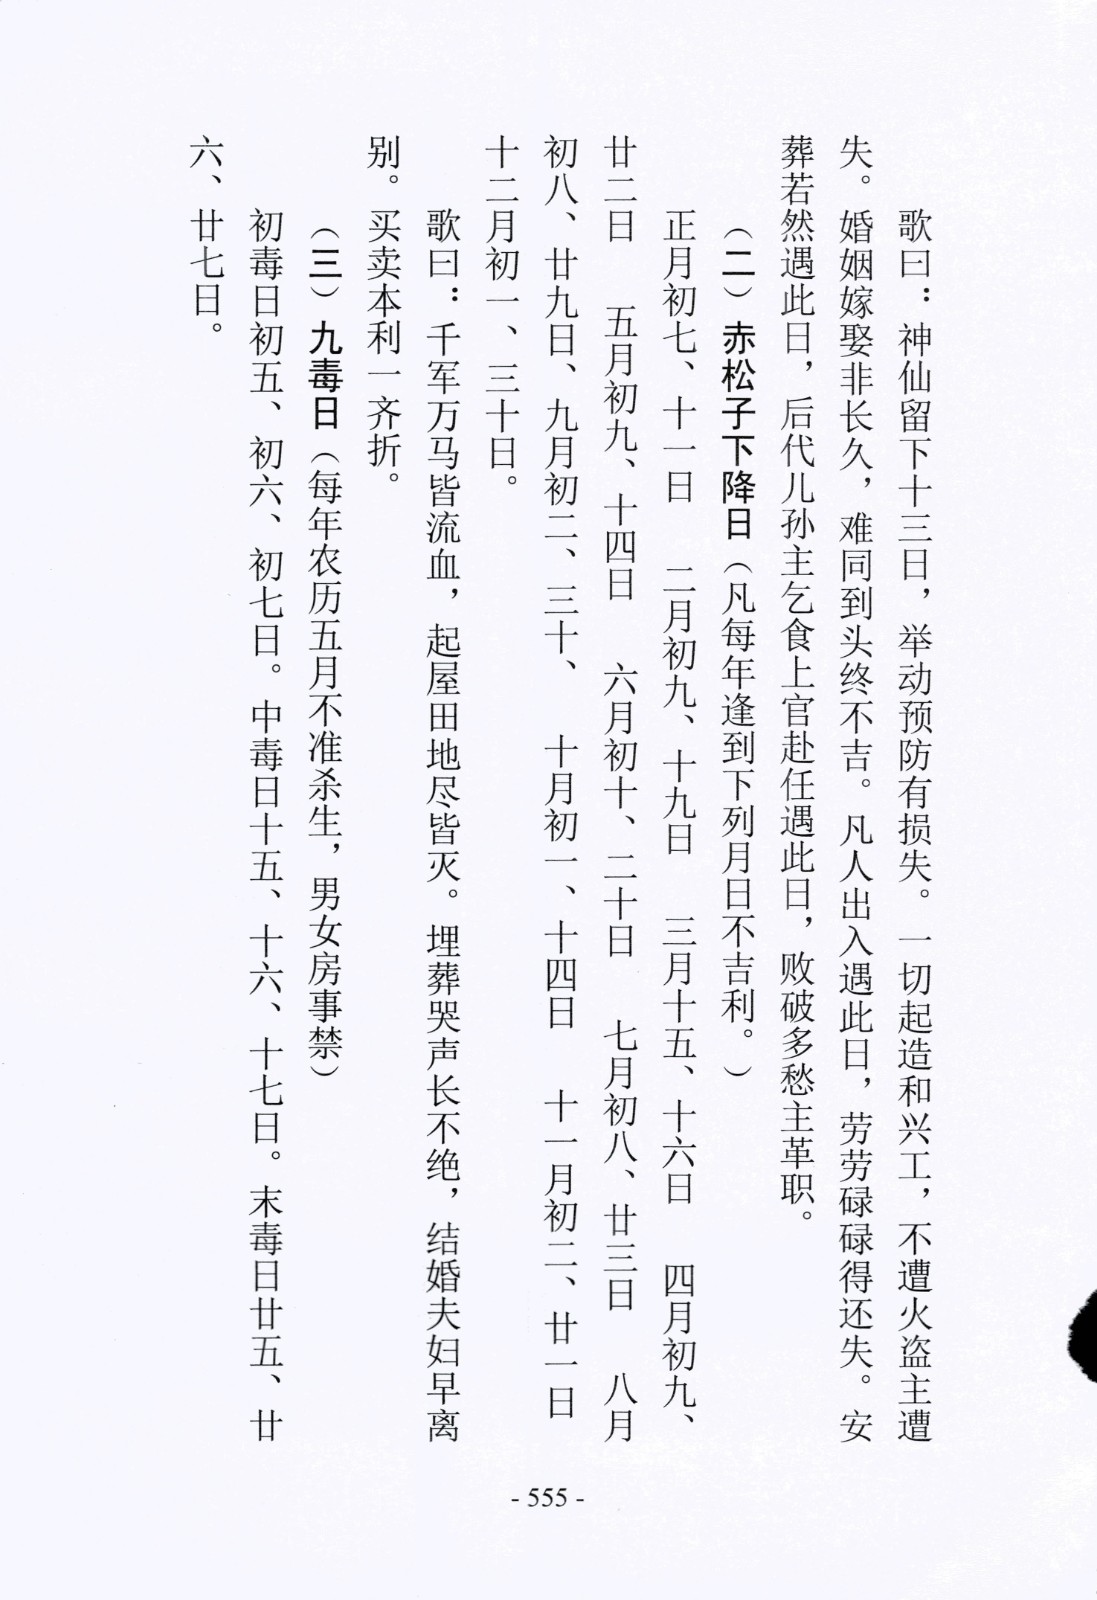 歌曰：神仙留下十三日，举动预防有损失。一切起造和兴工，不遭火盗主遭
失。婚姻嫁娶非长久，难同到头终不吉。凡人出入遇此日，劳劳碌碌得还失。安
葬若然遇此日，后代儿孙主乞食上官赴任遇此日，败破多愁主革职。
（二）赤松子下降日（凡每年逢到下列月日不吉利。）
正月初七、十一日　二月初九、十九日　三月十五、十六日　四月初九、
廿二日　五月初九、十四日　六月初十、二十日　七月初八、廿三日　八月
初八、廿九日、九月初二、三十、　十月初一、十四日　十一月初二、廿一日
十二月初一、三十日。
歌曰：千军万马皆流血，起屋田地尽皆灭。埋葬哭声长不绝，结婚夫妇早离
别。买卖本利一齐折。
（三）九毒日（每年农历五月不准杀生，男女房事禁）
初毒日初五、初六、初七日。中毒日十五、十六、十七日。末毒日廿五、廿
六、廿七日。
- 555 -